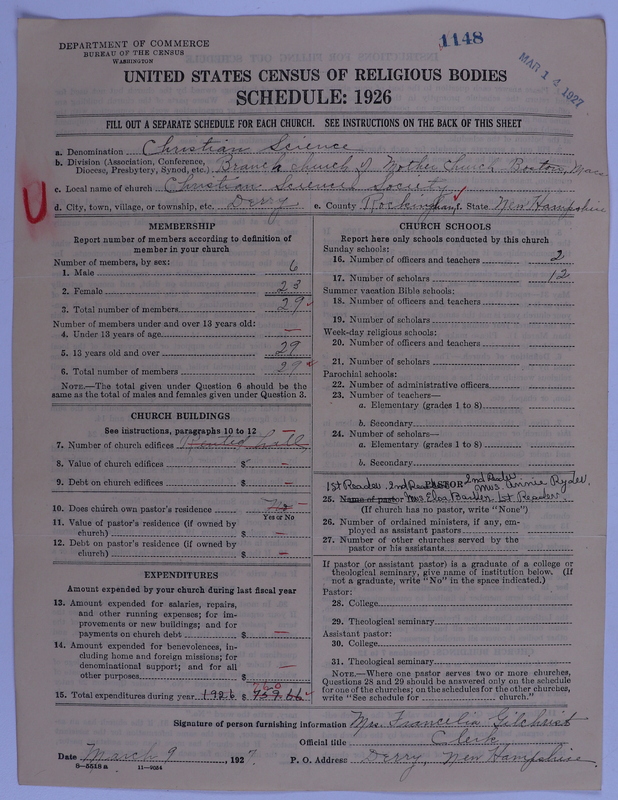 1148
MAR 14 1927
DEPARTMENT OF COMMERCE
BUREAU OF THE CENSUS
WASHINGTON
UNITED STATES CENSUS OF RELIGIOUS BODIES
SCHEDULE: 1926
FILL OUT A SEPARATE SCHEDULE FOR EACH CHURCH. SEE INSTRUCTIONS ON THE BACK OF THIS SHEET
a. Denomination Christian Science
b. Division (Association, Conference, Diocese, Presbytery, Synod, etc.) Branch Church of Mother Church Boston, Mass
c. Local name of church Christian Science Society
d. City, town, village, or township, etc. Derry e. County Rockingham f. State New Hampshire
U
MEMBERSHIP
Report number of members according to definition of
member in your church
Number of members, by sex:
1. Male 6
2. Female 23
3. Total number of members 29
Number of members under and over 13 years old:
4. Under 13 years of age —
5. 13 years old and over 29
6. Total number of members 29
NOTE.—The total given under Question 6 should be the
same as the total of males and females given under Question 3.
CHURCH BUILDINGS
See instructions, paragraphs 10 to 12
7. Number of church edifices Rented hall —
8. Value of church edifices $ —
9. Debt on church edifices $ —
10. Does church own pastor's residence No
Yes or No
11. Value of pastor's residence (if owned by
church) $ —
12. Debt on pastor's residence (if owned by
church) $ —
EXPENDITURES
Amount expended by your church during last fiscal year
13. Amount expended for salaries, repairs,
and other running expenses; for im-
provements or new buildings; and for
payments on church debt $ —
14. Amount expended for benevolences, in-
cluding home and foreign missions; for
denominational support; and for all
other purposes $ —
15. Total expenditures during year 1926 $ 759.66
CHURCH SCHOOLS
Report here only schools conducted by this church
Sunday schools:
16. Number of officers and teachers 2
17. Number of scholars 12
Summer vacation Bible schools:
18. Number of officers and teachers
19. Number of scholars
Week-day religious schools:
20. Number of officers and teachers
21. Number of scholars
Parochial schools:
22. Number of administrative officers
23. Number of teachers—
a. Elementary (grades 1 to 8)
b. Secondary
24. Number of scholars—
a. Elementary (grades 1 to 8)
b. Secondary
1st Reader, 2nd Reader PASTOR 2nd Reader
Mrs. Annie Ryder.
25. Name of pastor Mrs 1st Reader
(If church has no pastor, write "None")
26. Number of ordained ministers, if any, em-
ployed as assistant pastors
27. Number of other churches served by the
pastor or his assistants
If pastor (or assistant pastor) is a graduate of a college or
theological seminary, give name of institution below. (If
not a graduate, write "No" in the space indicated.)
Pastor:
28. College
29. Theological seminary
Assistant pastor:
30. College
31. Theological seminary
NOTE.—Where one pastor serves two or more churches,
Questions 28 and 29 should be answered only on the schedule
for one of the churches; on the schedules for the other churches,
write "See schedule for church."
Signature of person furnishing information Mrs. Francelia Gilchrist
Official title Clerk
Date March 9, 1927. P. O. Address Derry, New Hampshire
8—5518 a 11—9054